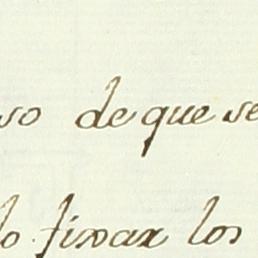 so de que se
lo firmar los